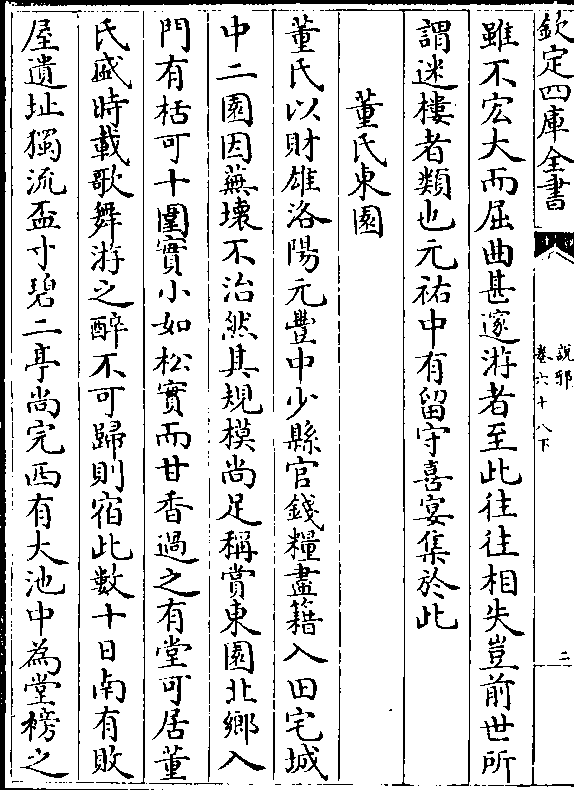 欽定四庫全書
說郛
卷六十八下
三
雖不宏大而屈曲甚邃游者至此往往相失豈前世所
謂迷樓者類也元祐中有留守喜宴集於此
董氏東園
董氏以財雄洛陽元豐中少縣官錢糧盡籍入田宅城
中二園因蕪壞不治然其規模尚足稱賞東園北鄉入
門有栝可十圍實小如松實而甘香過之有堂可居董
氏盛時載歌舞游之醉不可歸則宿此數十日南有敗
屋遺址獨流盃寸碧二亭尚完西有大池中為堂榜之